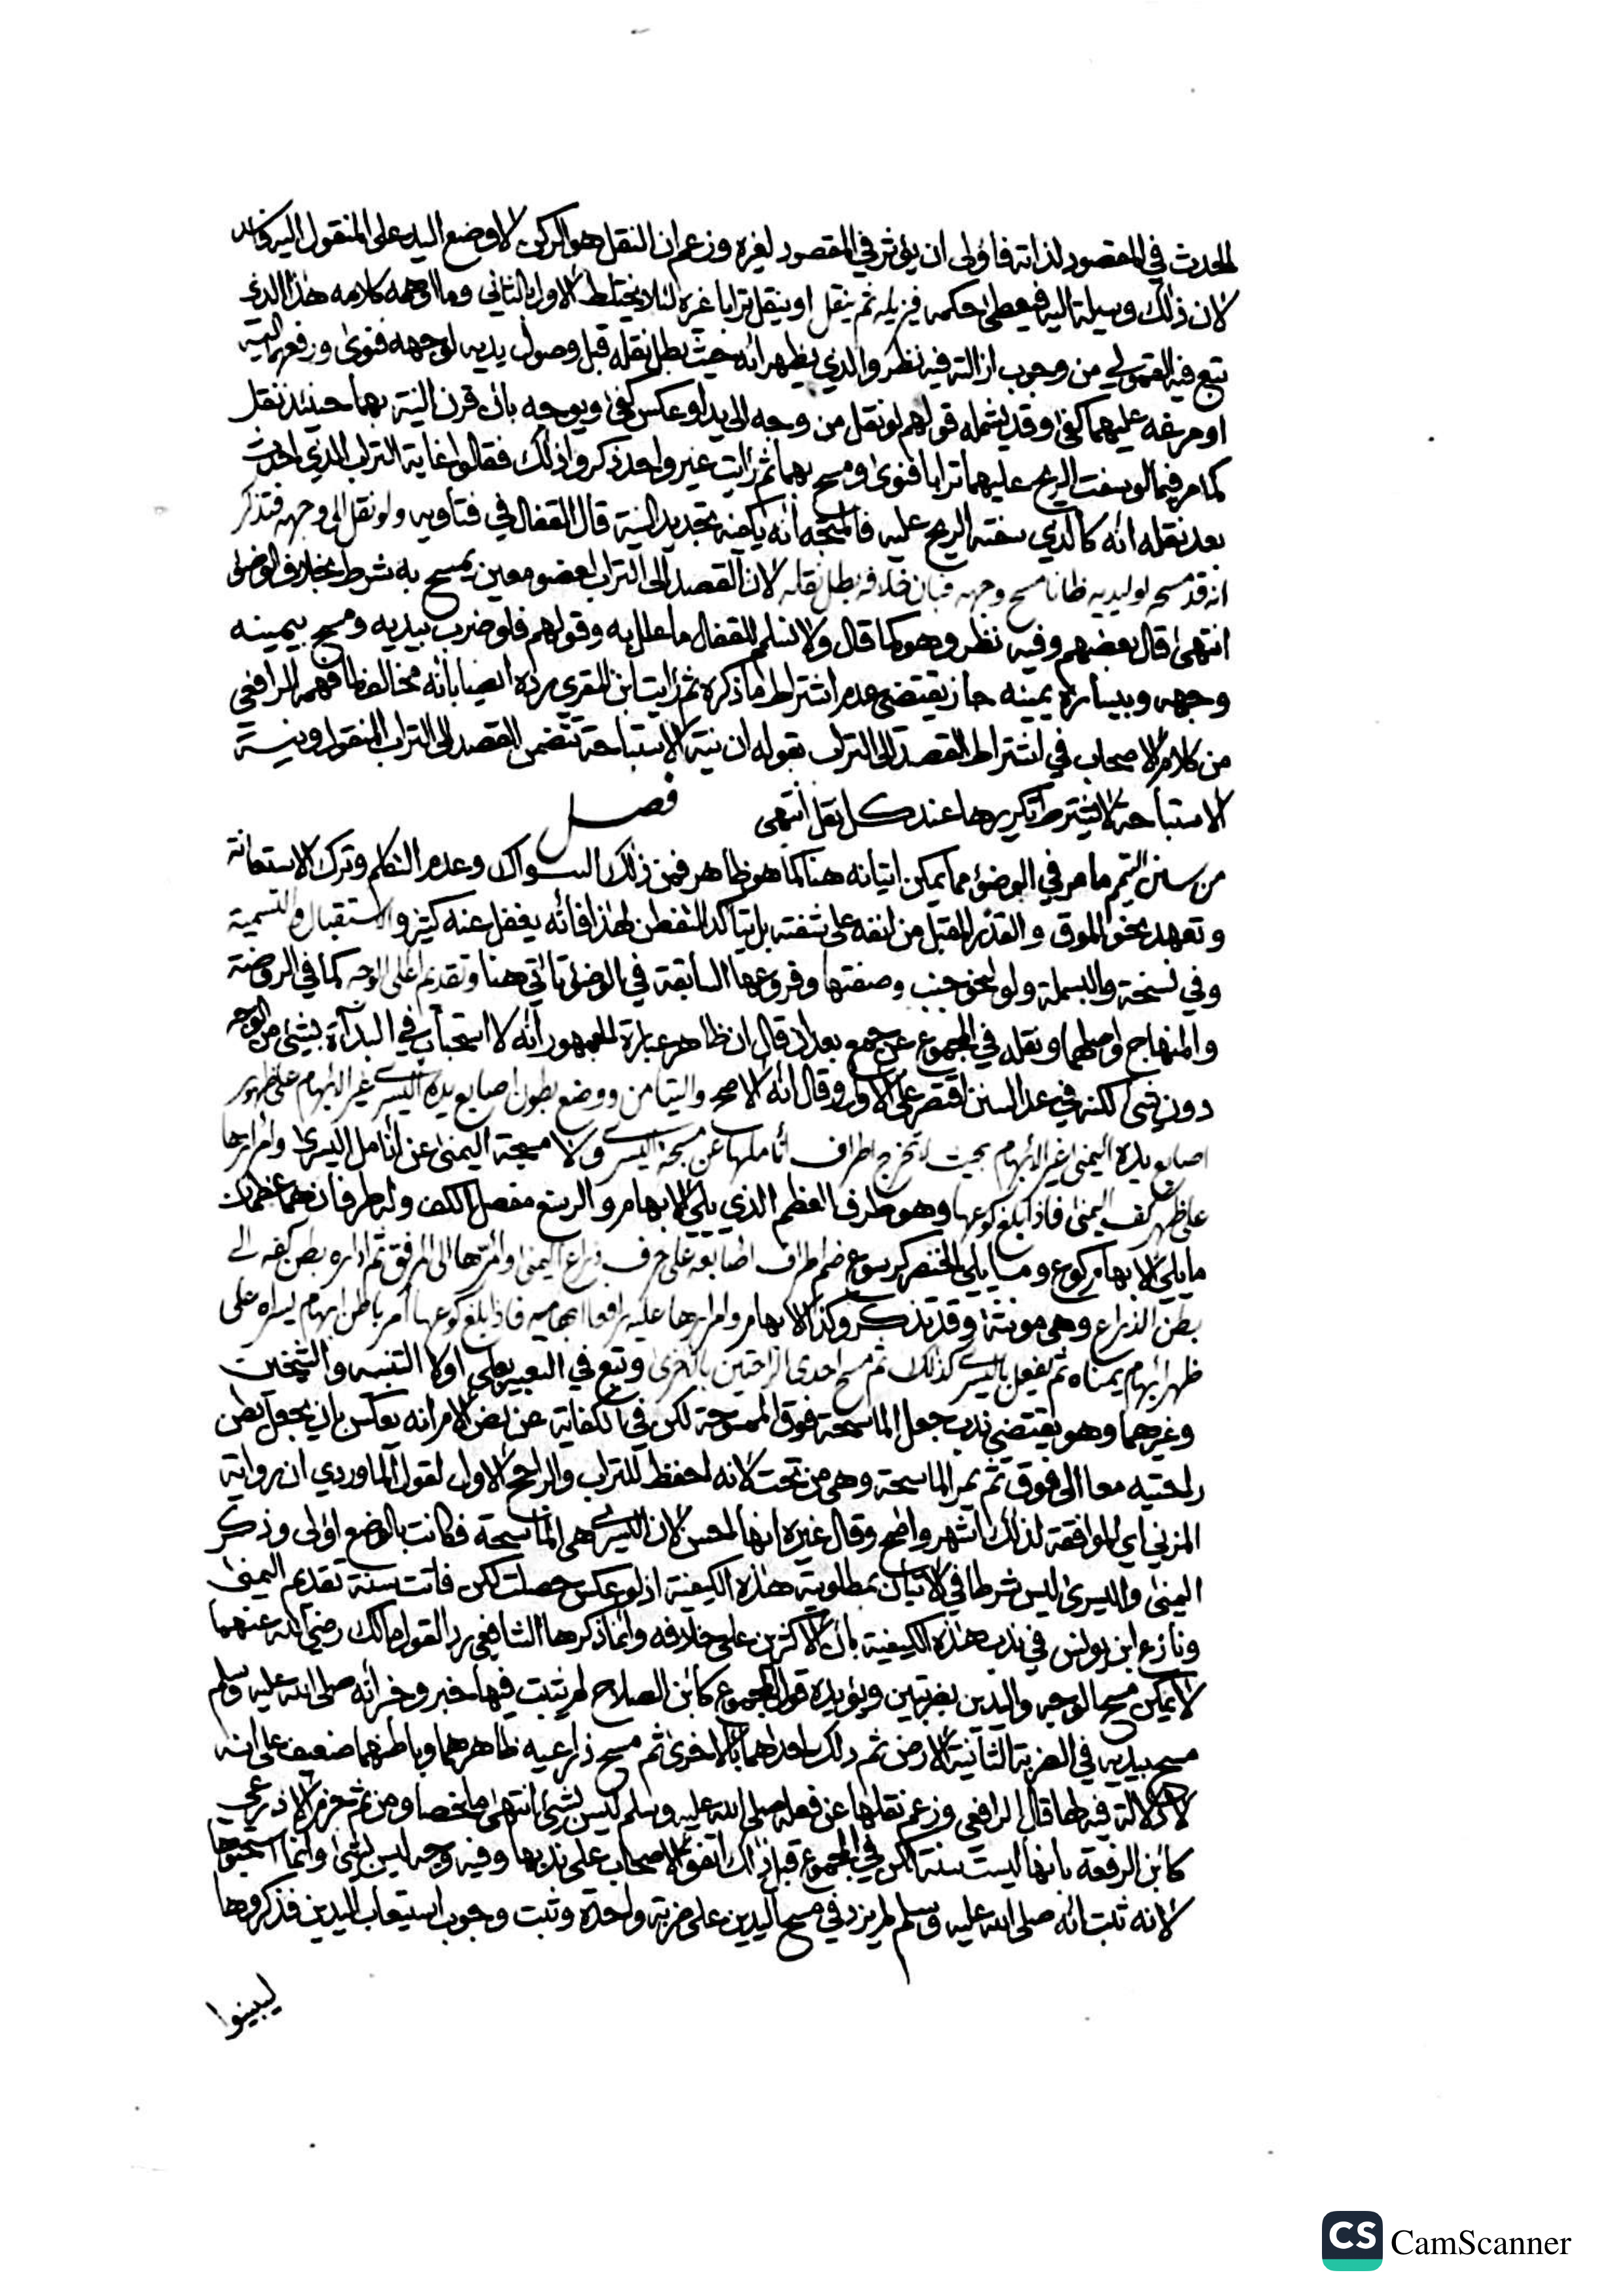 الحدث في المقصود لذاته فاولى ان يؤثر في المقصود لغيره وزعم ان النقل هو الركن لا وضع اليد على المنقول اليه
لان ذلك وسيلة اليه فيعطى حكمه فيزيله ثم ينقل او ينقل ترابا غيره لئلا يختلط الاول بالثاني وما اوهمه كلامه هذا الذي
تبع فيه القمولي من وجوب ازالته فيه نظر والذي يظهر انه حيث بطل نقله قبل وصول يديه لوجهه فنوى ورفعهما اليه
او مرغه عليهما كفى وقد يشمله قولهم لو نقل من وجه الى يد او عكس كفى ويوجه بان قرن النية بهما حينئذ نقل
كما مر فيما لو سفت الريح عليهما ترابا فنوى ومسح بهما ثم رايت غير واحد ذكروا ذلك فقالوا غاية التراب الذي احدث
بعد نقله انه كالذي سفته الريح عليه فالمتجه انه يكفيه تجديد النية قال القفال في فتاويه ولو نقل الى وجهه فتذكر
انه قد مسحه او ليديه ظانا مسح وجهه فبان خلافه بطل نقله لان القصد الى التراب لعضو معين يمسح به شرط بخلاف الوضوء
انتهى قال بعضهم وفيه نظر وهو كما قال ولا نسلم للقفال ما علل به وقولهم فلو ضرب بيديه ومسح بيمينه
وجهه وبيساره يمينه جاز يقتضي عدم اشتراط ما ذكره ثم رايت ابن المقري رده ايضا بانه مخالف لما فهمه الرافعي
من كلام الاصحاب في اشتراط القصد الى التراب بقوله ان نية الاستباحة تتضمن القصد الى التراب المنقول ونية
الاستباحة لا يشترط تكريرها عند كل نقل انتهى فصل
من سنن التيمم ما مر في الوضوء مما يمكن اتيانه هنا كما هو ظاهر فمن ذلك السواك وعدم التكلم وترك الاستعانة
وتعهد نحو الموق والقدر المقبل من انفه على شفته بل يتاكد التفطن لهذا فانه يغفل عنه كثيرا والاستقبال والتسمية
وفي نسخة والبسملة ولو لنحو جنب وصفتها وفروعها السابقة في الوضوء تاتي هنا وتقديم اعلى الوجه كما في الروضة
والمنهاج واصلهما ونقله في المجموع عن جمع بعد ان قال ان ظاهر عبارة الجمهور انه لا استحباب في البداءة بشيء من الوجه
دون شيء لكنه في عد السنن اقتصر على الاول وقال انه الاصح والتيامن ووضع بطون اصابع يده اليسرى غير الابهام على ظهور
اصابع يده اليمنى غير الابهام بحيث لا تخرج اطراف اناملها عن مسبحة اليسرى ولا مسبحة اليمنى عن انامل اليسرى وامرارها
على ظهر كف اليمنى فاذا بلغ كوعها وهو طرف العظم الذي يلي الابهام والرسغ مفصل الكف وله طرفان هما عظمان
ما يلي الابهام كوع وما يلي الخنصر كرسوع ضم اطراف اصابعه على حرف ذراع اليمنى وامرها الى المرفق ثم ادار بطن كفه الى
بطن الذراع وهي مونثة وقد تذكر وكذا الابهام وامرارها عليه رافعا ابهاميه فاذا بلغ كوعها امر باطن ابهام يسراه على
ظهر ابهام يمناه ثم يفعل باليسرى كذلك ثم مسح احدى الراحتين بالاخرى وتبع في التعبير بعلى اولا التنبيه والشيخين
وغيرهما وهو يقتضي ندب جعل الماسحة فوق الممسوحة لكن في الكفاية عن نص الام انه يعكس بان يجعل بطن
راحتيه معا الى فوق ثم يمر الماسحة وهي من تحت لانه احفظ للتراب والراجح الاول لقول الماوردي ان رواية
المزني اي الموافقة لذلك اشهر واصح وقال غيره انها احسن لان اليسرى هي الماسحة فكانت بالوضع اولى وذكر
اليمنى واليسرى ليس شرطا في الاتيان بمطلوبية هذه الكيفية اذ لو عكس حصلت لكن فاتت سنة تقديم اليمنى
ونازع ابن يونس في ندب هذه الكيفية بان الاكثرين على خلافه وانما ذكرها الشافعي رد القول مالك رضي الله عنهما
لا يمكن مسح الوجه واليدين بضربتين ويؤيده قول المجموع كابن الصلاح لم يثبت فيها خبر وخبر انه صلى الله عليه وسلم
مسح بيديه في الضربة الثانية الارض ثم دلك احداهما بالاخرى ثم مسح ذراعيه ظاهرهما وباطنهما ضعيف على انه
لا دلالة فيه لها قال الرافعي وزعم نقلها عن فعله صلى الله عليه وسلم ليس بشيء انتهى ملخصا ومن ثم جزم الاذرعي
كابن الرفعة بانها ليست سنة لكن في المجموع قبل ذلك اتفق الاصحاب على ندبها وفيه وجه ليس بشيء وانما استحبوها
لانه ثبت انه صلى الله عليه وسلم لم يزد في مسح اليدين على ضربة واحدة وثبت وجوب استيعاب اليدين فذكروها
ليبينوا
CS CamScanner